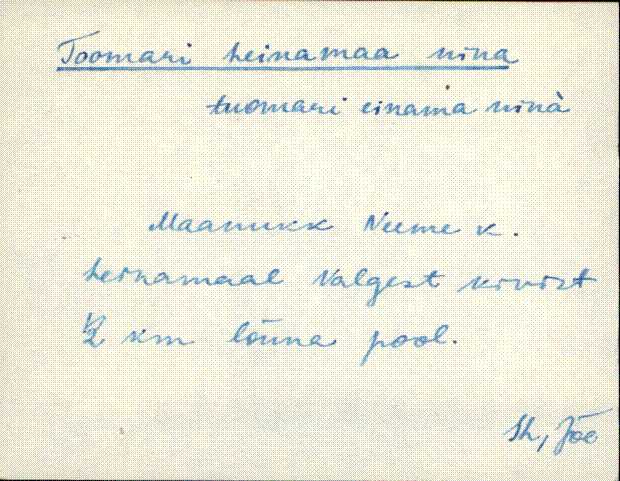 Toomari heinamaa nina
tuomari einama ninà
Maanukk Neeme k.
heinamaal Valgest kivist
1/2 km lõuna pool.
Jh, Jõe